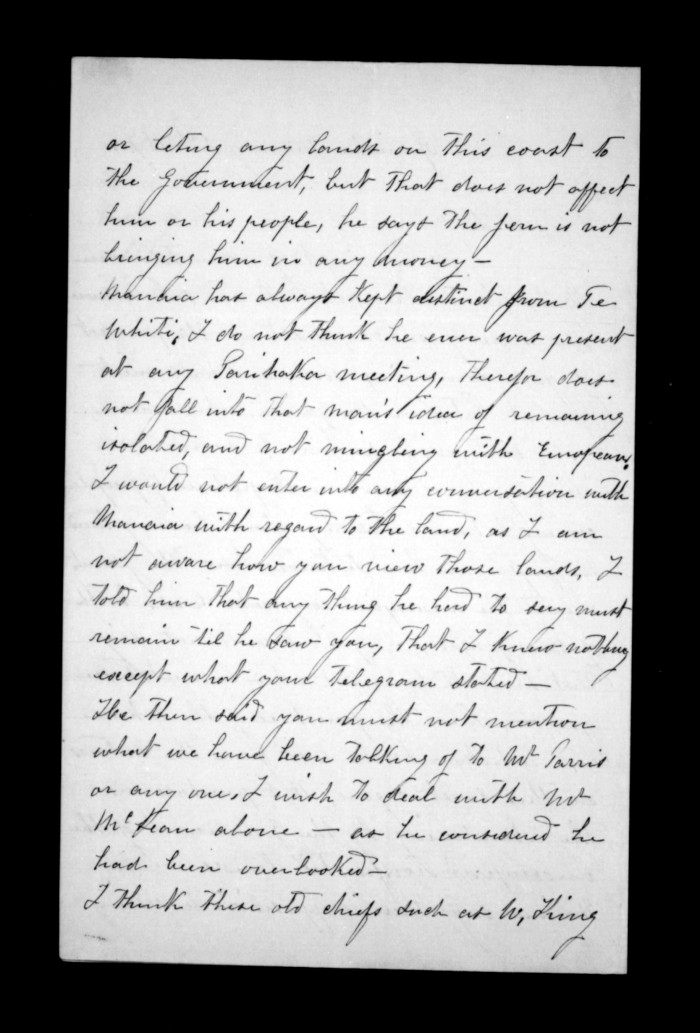 or leting any lands on this coast to
the Government, but that does not affect
him or his people, he says the fern is not
bringing him in any money —
Manaia has always Kept distinct from Te
Whiti, I do not think he ever was present
at any Parihaka meeting, therefor does
not fall into that man's idea of remaining
isolated, and not mingling with Europeans.
I would not enter into any conversation with
Manaia with regard to the land, as I am
not aware how you view those lands, I
told him that any thing he had to say must
remain 'til he saw you, that I Knew nothing
except what your telegram stated —
He then said you must not mention
what we have been talking of to Mr Parris
or any one, I wish to deal with Mr
McLean alone — as he considered he
had been overlooked —
I think these old chiefs such as W, King